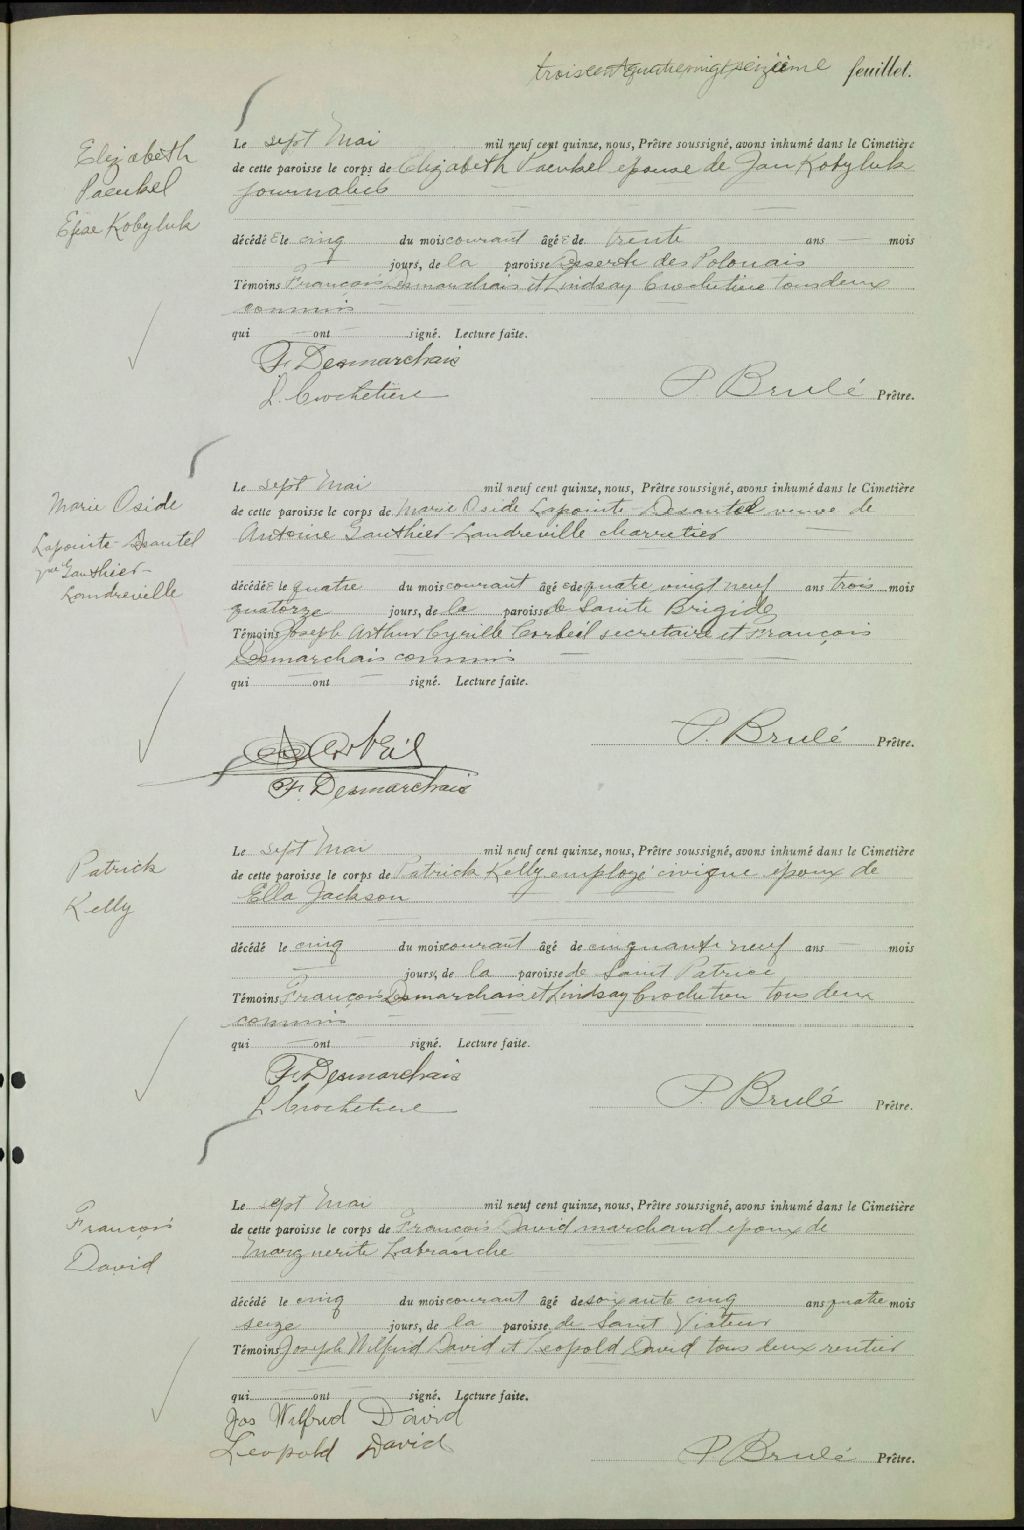 troiscentquatrevingtseizième feuillet.
Elizabeth
Paenkel
Epse Kobyluk
Le sept Mai mil neuf cent quinze, nous, Prêtre soussigné, avons inhumé dans le Cimetière
de cette paroisse le corps de Elizabeth Paenkel epouse de Jan Kobyluk
journalier
décédé e le cinq du mois courant âgé e de trente ans — mois
— jours, de la paroisse Desserte des Polonais
Témoins François Desmarchais et Lindsay Crochetiere tous deux
commis
qui — ont — signé. Lecture faite.
F. Desmarchais
L. Crochetiere
P. Brulé Prêtre.
Marie Oside
Lapointe-Desautel
Gauthier-
Landreville
Le sept Mai mil neuf cent quinze, nous, Prêtre soussigné, avons inhumé dans le Cimetière
de cette paroisse le corps de Marie Oside Lapointe-Desautel veuve de
Antoine Gauthier-Landreville charretier
décédé e le quatre du mois courant âgé e de quatre vingt neuf ans trois mois
quatorze jours, de la paroisse de Sainte Brigide
Témoins Joseph Arthur Cyrille Corbeil secretaire et François
Desmarchais commis
qui — ont — signé. Lecture faite.
P. Brulé Prêtre.
Corbeil
F. Desmarchais
Patrick
Kelly
Le sept Mai mil neuf cent quinze, nous, Prêtre soussigné, avons inhumé dans le Cimetière
de cette paroisse le corps de Patrick Kelly employé civique époux de
Ella Jackson
décédé le cinq du mois courant âgé de cinquante neuf ans mois
— jours, de la paroisse de Saint Patrice
Témoins François Desmarchais et Lindsay Crochetiere tous deux
commis
qui — ont — signé. Lecture faite.
F. Desmarchais
L Crochetiere
P. Brulé Prêtre.
François
David
Le sept Mai mil neuf cent quinze, nous, Prêtre soussigné, avons inhumé dans le Cimetière
de cette paroisse le corps de François David marchand epoux de
Marguerite Labranche
décédé le cinq du mois courant âgé de soixante cinq ans quatre mois
seize jours, de la paroisse de Saint Viateur
Témoins Joseph Wilfrid David et Leopold David tous deux rentier
qui — ont — signé. Lecture faite.
Jos Wilfrid David
Leopold David
P Brulé Prêtre.